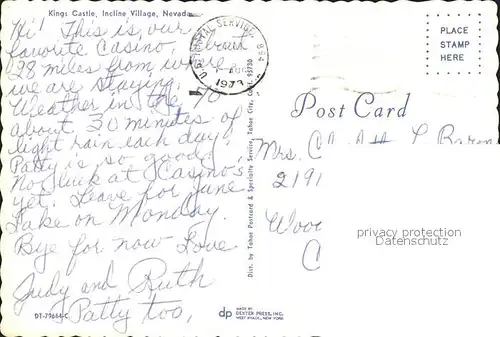 Kings Castle, Incline Village, Nevada
Hi! This is our
favorite Casino, about
28 miles from where
we are staying.
Weather in the 70
about 30 minutes of
light rain each day.
Patty is so good.
No luck at Casino's
yet. Leave for June
Lake on Monday.
Bye for now Love
Judy and Ruth
Patty too,
DT-79664-C
U.S. POSTAL SERVICE
1973
Dist. by Tahoe Postcard & Specialty Service, Tahoe City, Calif. 95730
MADE BY
dp DEXTER PRESS, INC.
WEST NYACK, NEW YORK
PLACE
STAMP
HERE
Post Card
Mrs. C
219
Woo
C
privacy protection
Datenschutz